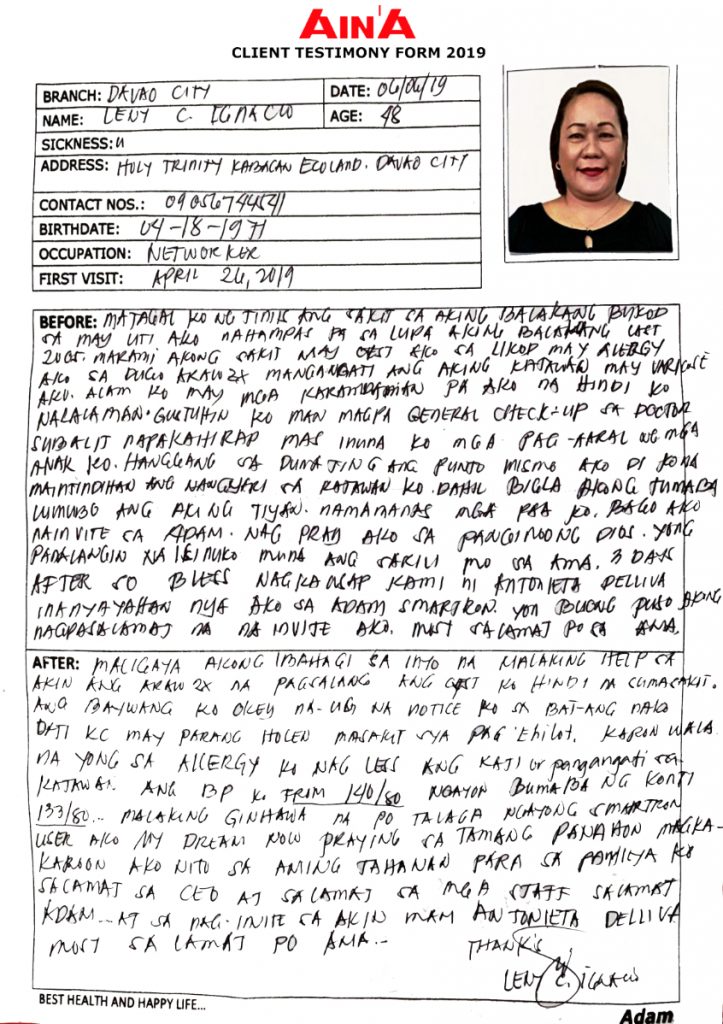 AIN'A
CLIENT TESTIMONY FORM 2019
BRANCH: DAVAO CITY DATE: 06/06/19
NAME: LENY C. IGNACIO AGE: 48
SICKNESS:
ADDRESS: HOLY TRINITY KABACAN ECOLAND. DAVAO CITY
CONTACT NOS.: 09056744541
BIRTHDATE: 04-18-1971
OCCUPATION: NETWORKER
FIRST VISIT: APRIL 26, 2019
BEFORE: MATAGAL KO NG TINIIS ANG SAKIT SA AKING BALAKANG BUKOD
SA MAY UTI AKO NAHAMPAS PA SA LUPA AKING BALAKANG LAST
2005. MARAMI AKONG SAKIT MAY CYST AKO SA LIKOD MAY ALERGY
AKO SA DUGO ARAW 2X MANGANGATI ANG AKING KATAWAN MAY VARICOSE
AKO. ALAM KO MAY MGA KARAMDAMAN PA AKO NA HINDI KO
NALALAMAN. GUSTUHIN KO MAN MAGPA GENERAL CHECK-UP SA DOCTOR
SUBALIT NAPAKAHIRAP MAS INUNA KO MGA PAG-AARAL NG MGA
ANAK KO. HANGGANG SA DUMATING ANG PUNTO MISMO AKO DI KONA
MAINTINDIHAN ANG NANGYARI SA KATAWAN KO. DAHIL BIGLA AKONG TUMABA
LUMUBO ANG AKING TIYAN. NAMAMANAS MGA PAA KO. BAGO AKO
NAINVITE SA ADAM. NAG PRAY AKO SA PANGINOONG DIOS. YONG
PANALANGIN NA ISINUKO MUNA ANG SARILI MO SA AMA. 3 DAYS
AFTER SO BLESS NAGKAUSAP KAMI NI ANTONIETA DELLIVA
INANYAYAHAN NYA AKO SA ADAM SMARTRON. YON BUONG PUSO AKING
NAGPASALAMAT NA NA INVITE AKO. MOST SALAMAT PO SA AMA.
AFTER: MALIGAYA AKONG IBAHAGI SA INYO NA MALAKING HELP SA
AKIN ANG ARAW 2X NA PAGSALANG ANG CYST KO HINDI NA SUMASAKIT.
ANG BAYWANG KO OKEY NA NOTICE KO SA BAT-ANG NAKO
DATI KC MAY PARANG HOLEN MASAKIT SYA PAG EHILOT. KARON WALA
NA YONG SA ALLERGY KO NAG LESS ANG KATI or pangangati sa
KATAWAN. ANG BP KO FROM 140/80 NGAYON BUMABA NG KONTI
133/80... MALAKING GINHAWA NA PO TALAGA NGAYONG SMARTRON
USER AKO MY DREAM NOW PRAYING SA TAMANG PANAHON MAGKA-
KAROON AKO NITO SA AMING TAHANAN PARA SA PAMILYA KO
SALAMAT SA CEO AT SALAMAT SA MGA STAFF SALAMAT
ADAM... AT SA NAG-INVITE SA AKIN MAM ANTONIETA DELLIVA
MOST SALAMAT PO AMA.-
THANKS
LENY C. IGNACIO
BEST HEALTH AND HAPPY LIFE...
Adam